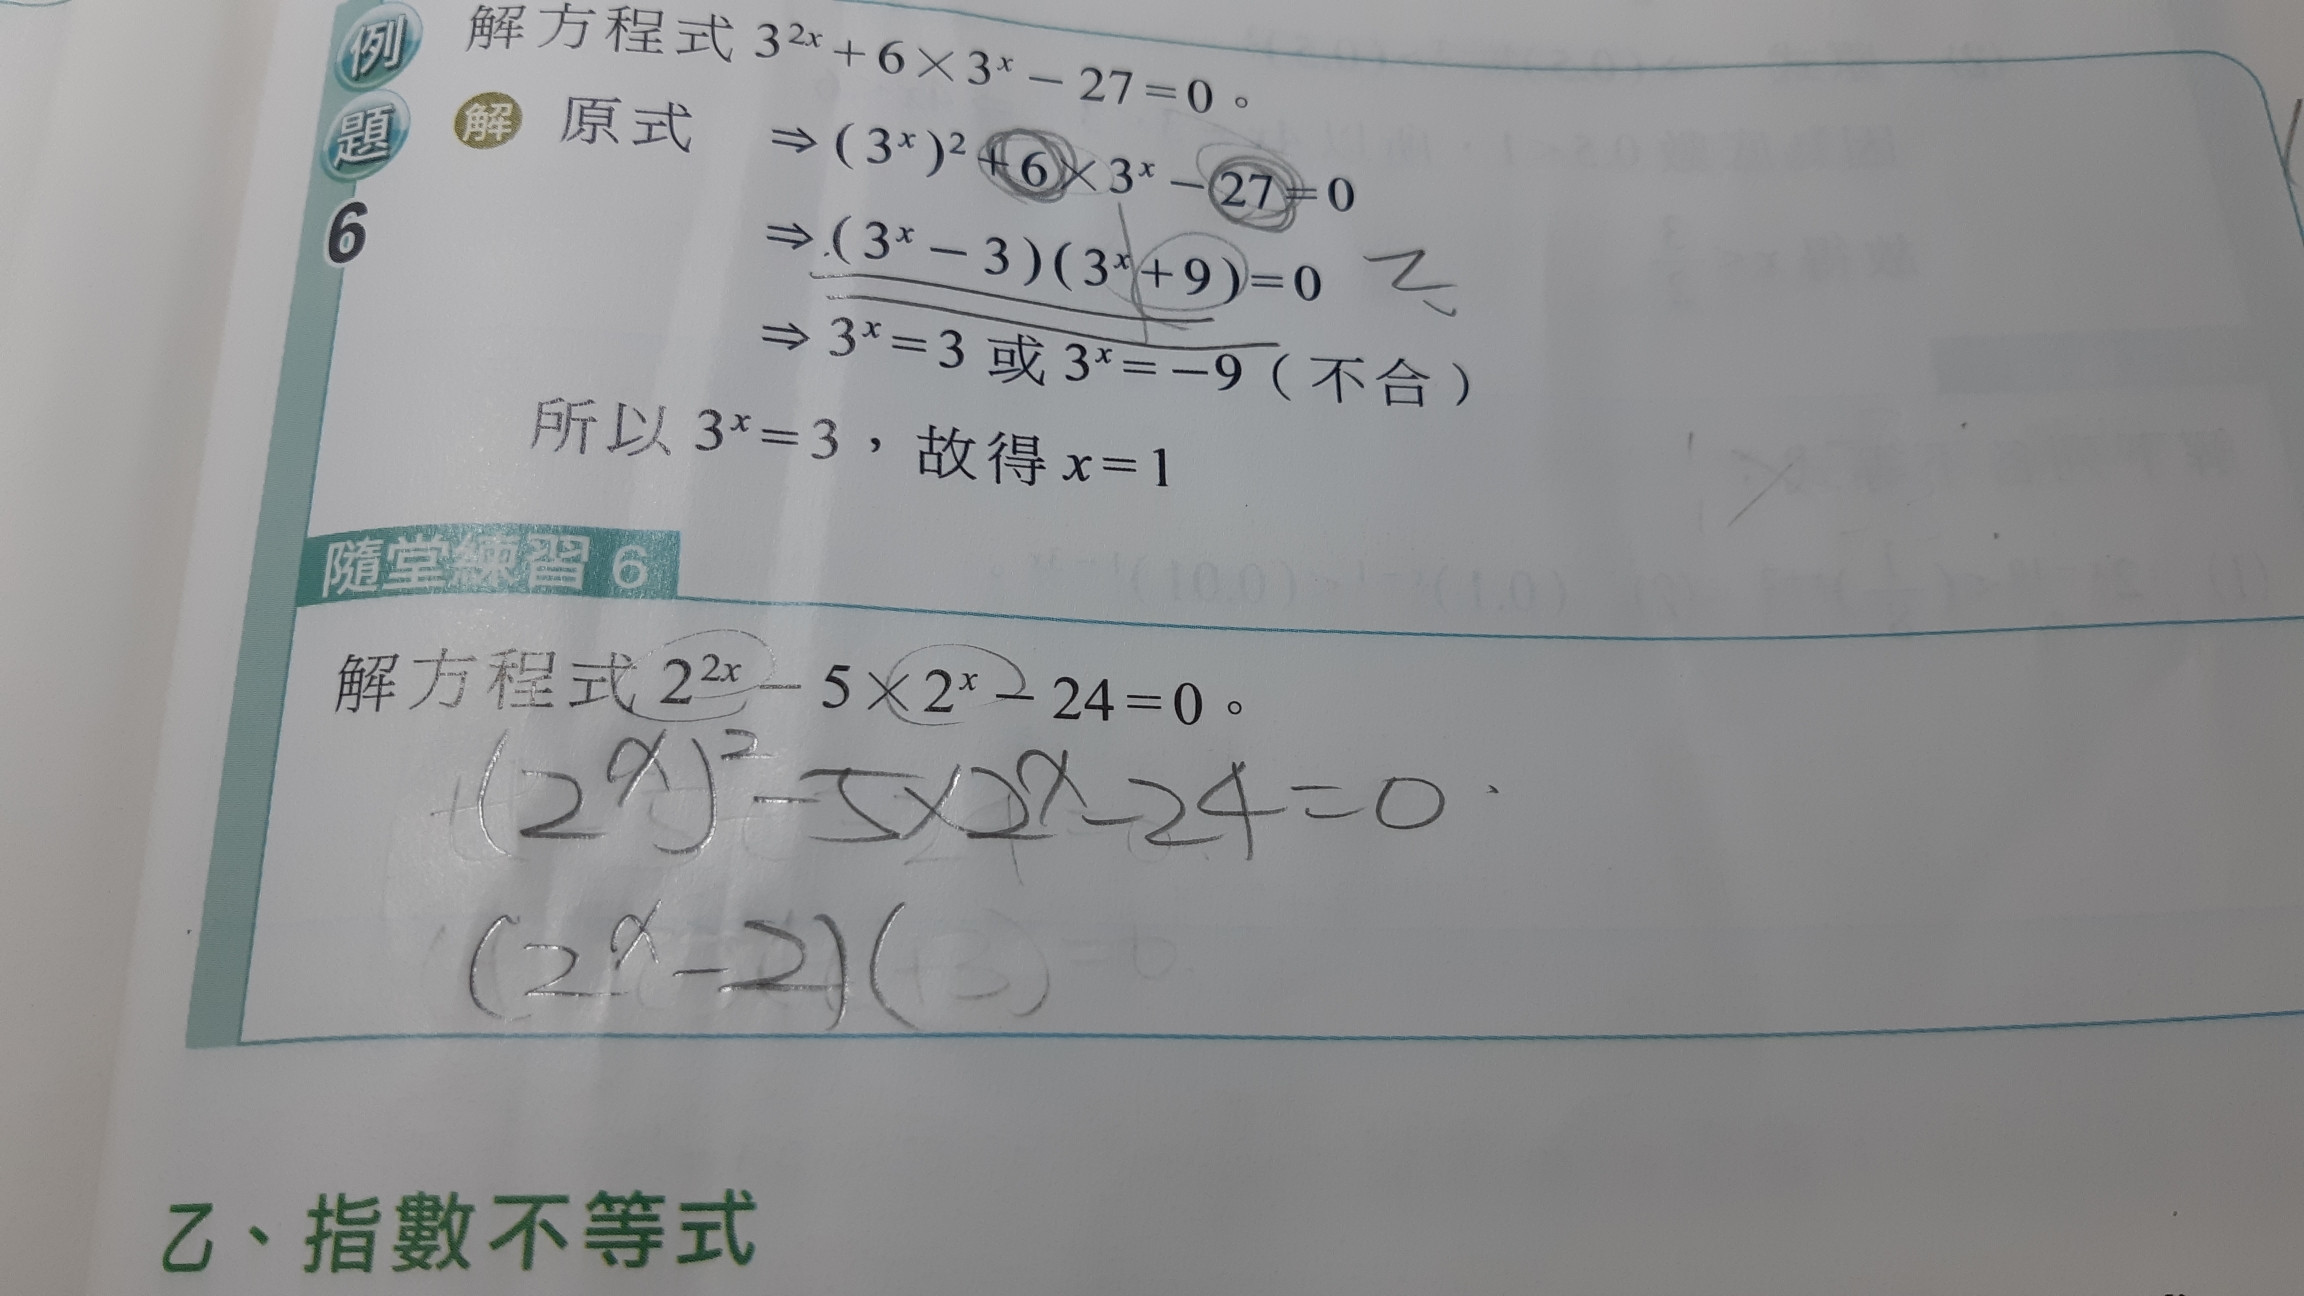 例題6 解方程式 3²ˣ + 6 × 3ˣ − 27 = 0。
解 原式 ⇒ (3ˣ)² + 6 × 3ˣ − 27 = 0
⇒ (3ˣ − 3)(3ˣ + 9) = 0
⇒ 3ˣ = 3 或 3ˣ = −9 (不合)
所以 3ˣ = 3,故得 x = 1
隨堂練習 6
解方程式 2²ˣ − 5 × 2ˣ − 24 = 0。
(2ˣ)² − 5 × 2ˣ − 24 = 0
(2ˣ − 2)(
乙、指數不等式